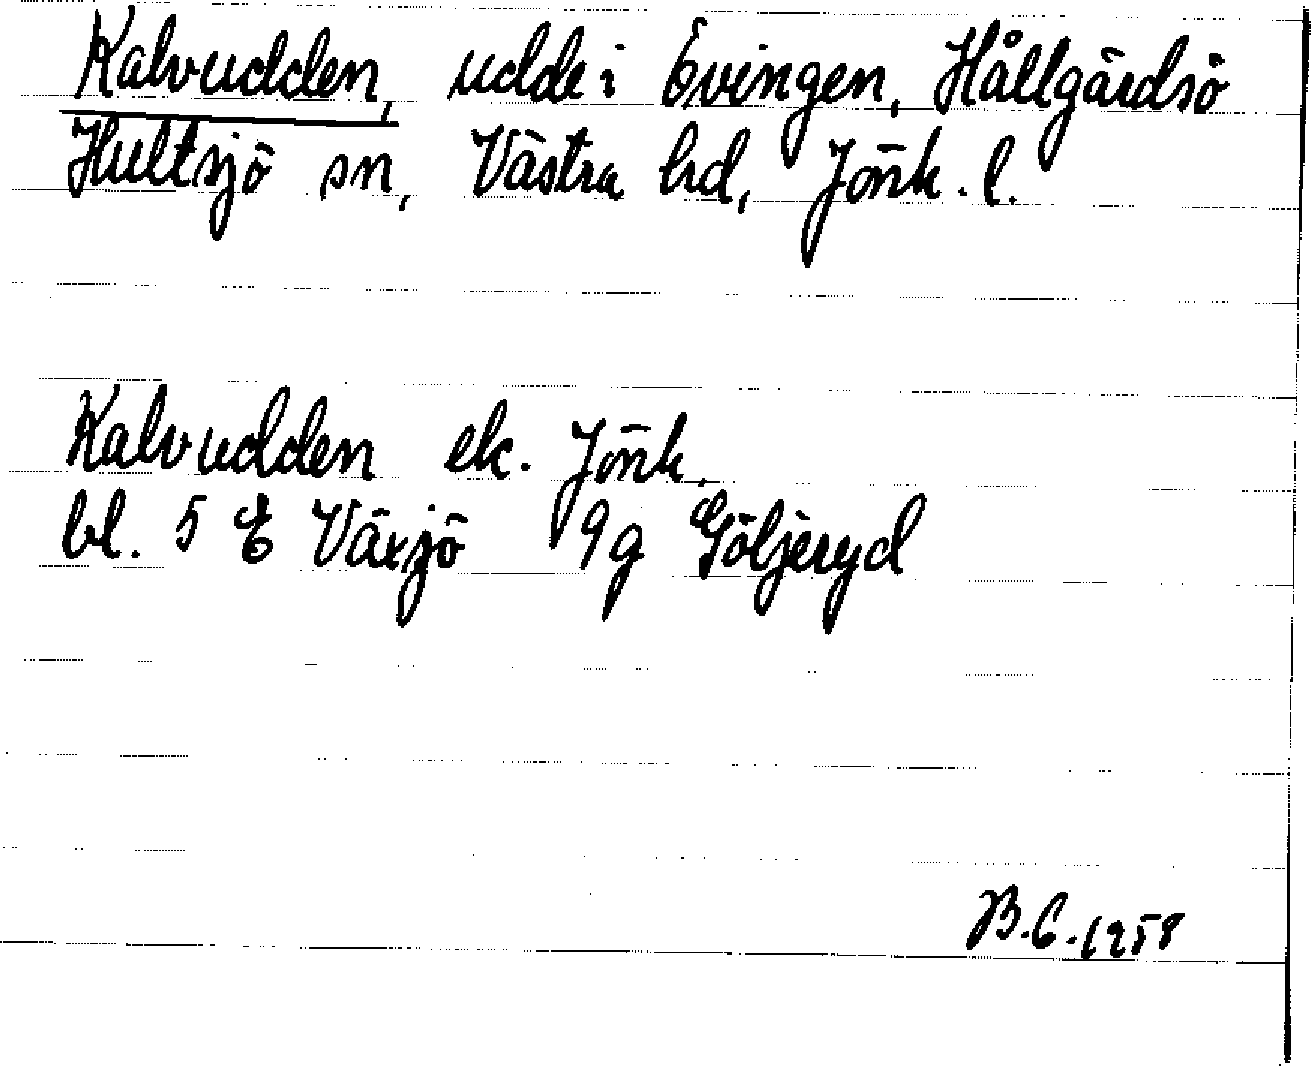 Kalvudden, udde i Övingen, Hållgårdsö
Hultsjö sn, Västra hd, Jönk. l.
Kalvudden ek. Jönk.
bl. 5 E Växjö 9g Göljeryd
B.C. 1958